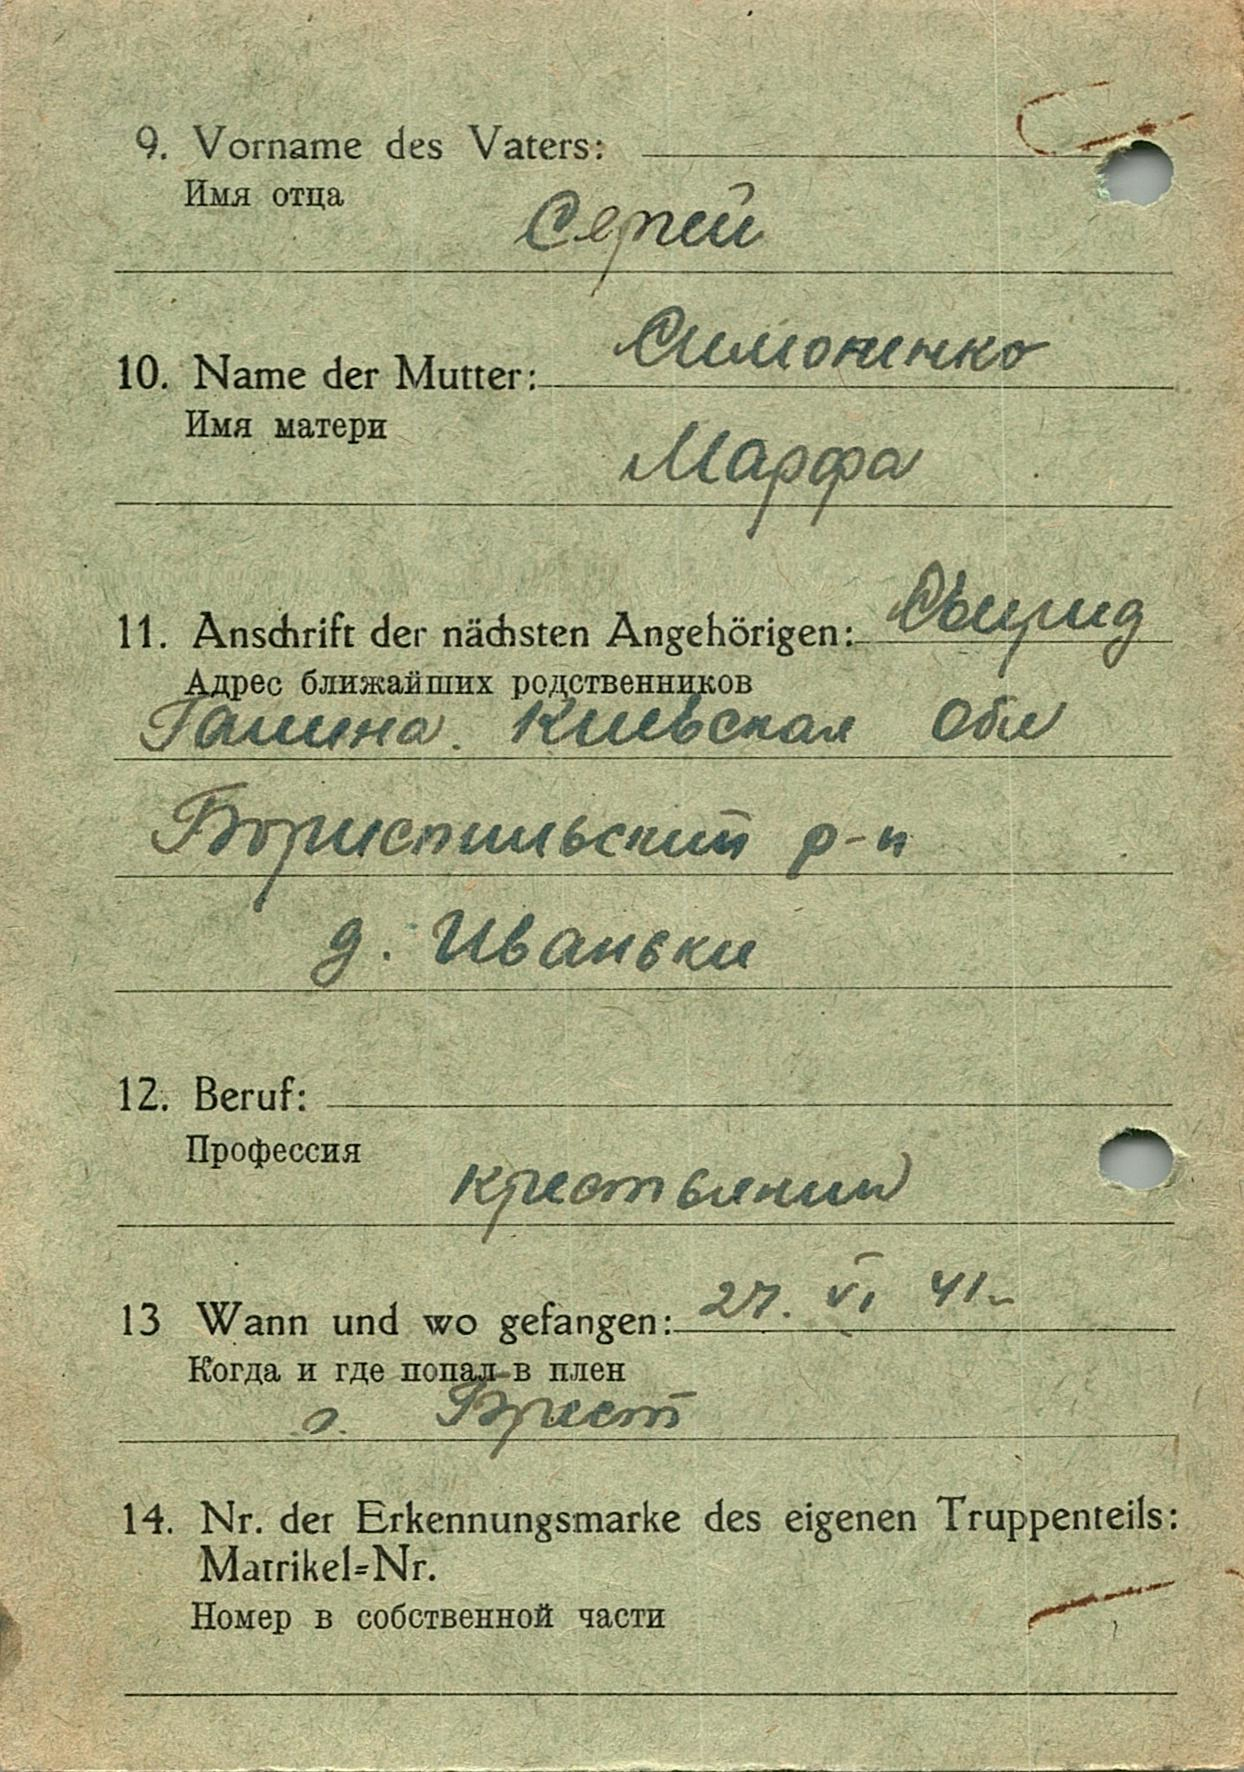 9. Vorname des Vaters:
Имя отца
Сергей
Симоненко
10. Name der Mutter:
Имя матери
Марфа
11. Anschrift der nächsten Angehörigen: Свирид
Адрес ближайших родственников
Галина. Киевская Обл
Бориспильский р-н
д. Иваньки
12. Beruf:
Профессия
крестьянин
13 Wann und wo gefangen: 27. VI 41
Когда и где попал в плен
г. Брест
14. Nr. der Erkennungsmarke des eigenen Truppenteils:
Matrikel=Nr.
Номер в собственной части